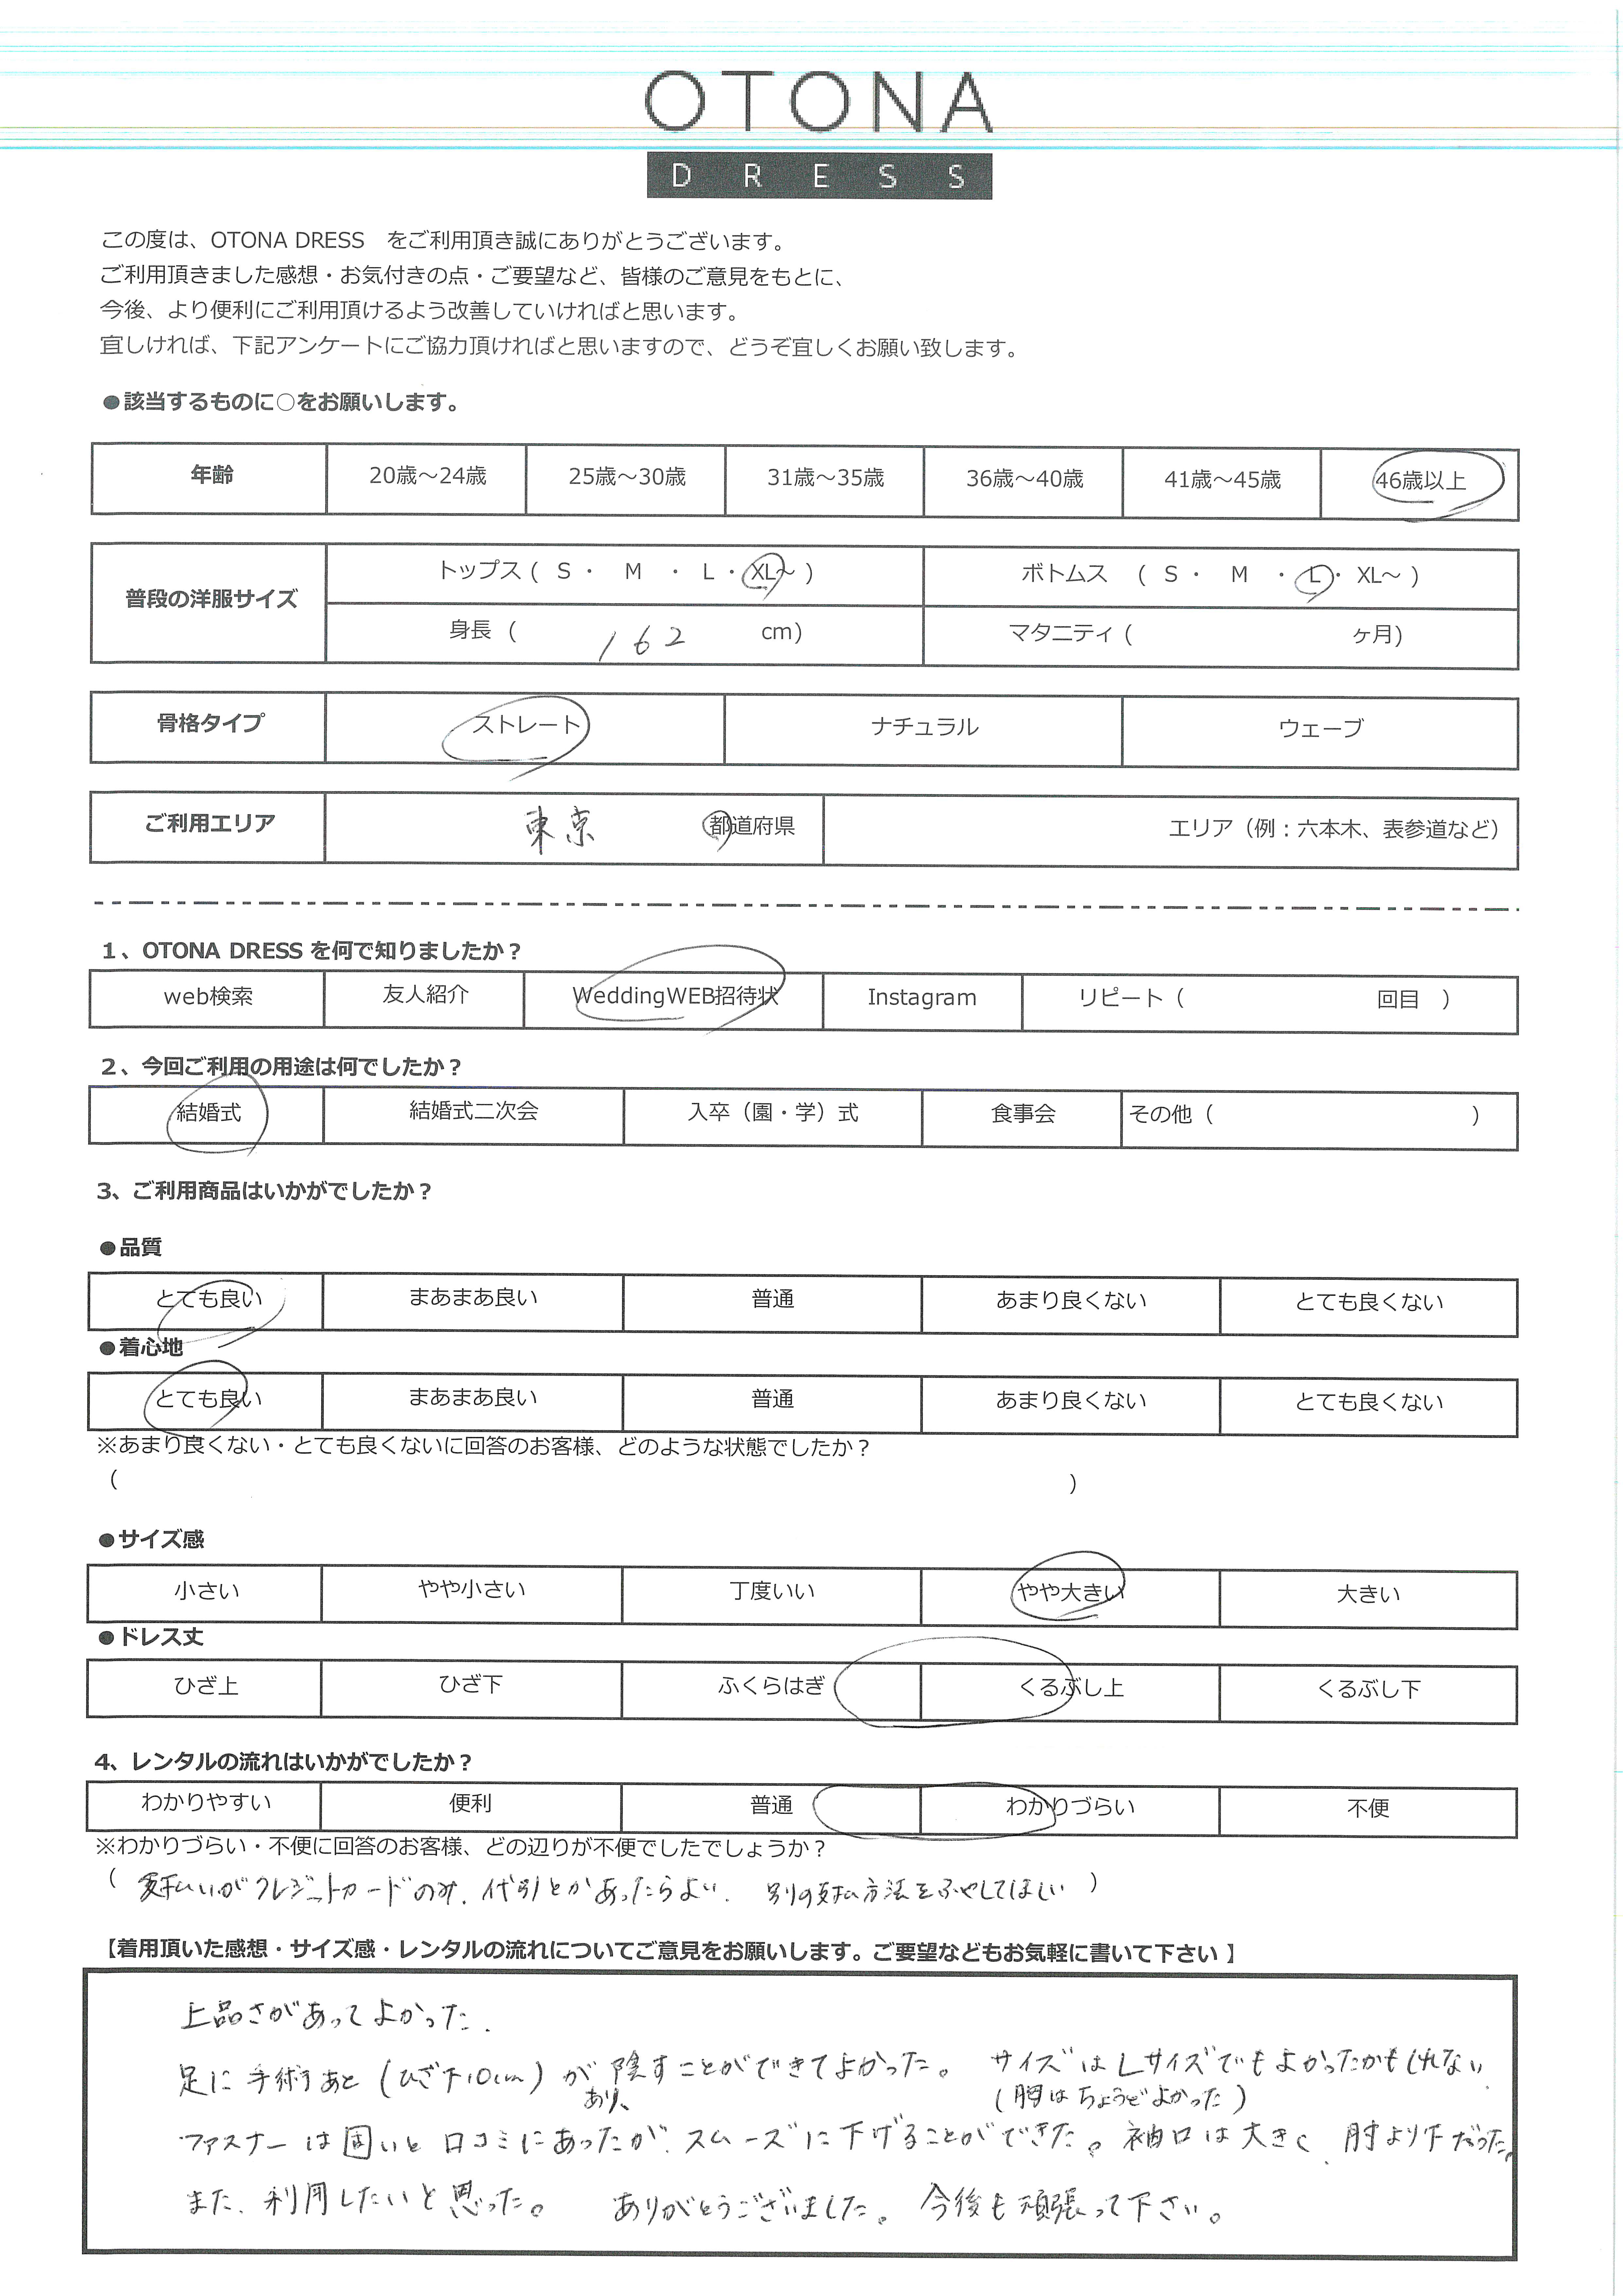 OTONA
DRESS
この度は、OTONA DRESS をご利用頂き誠にありがとうございます。
ご利用頂きました感想・お気付きの点・ご要望など、皆様のご意見をもとに、
今後、より便利にご利用頂けるよう改善していければと思います。
宜しければ、下記アンケートにご協力頂ければと思いますので、どうぞ宜しくお願い致します。
●該当するものに○をお願いします。
年齢 20歳～24歳 25歳～30歳 31歳～35歳 36歳～40歳 41歳～45歳 46歳以上
普段の洋服サイズ トップス ( S ・ M ・ L ・ XL～ ) ボトムス ( S ・ M ・ L ・ XL～ )
身長 ( 162 cm) マタニティ ( ヶ月)
骨格タイプ ストレート ナチュラル ウェーブ
ご利用エリア 東京 都道府県 エリア（例：六本木、表参道など）
1、OTONA DRESS を何で知りましたか？
web検索 友人紹介 WeddingWEB招待状 Instagram リピート（ 回目 ）
2、今回ご利用の用途は何でしたか？
結婚式 結婚式二次会 入卒（園・学）式 食事会 その他（ ）
3、ご利用商品はいかがでしたか？
●品質
とても良い まあまあ良い 普通 あまり良くない とても良くない
●着心地
とても良い まあまあ良い 普通 あまり良くない とても良くない
※あまり良くない・とても良くないに回答のお客様、どのような状態でしたか？
（ ）
●サイズ感
小さい やや小さい 丁度いい やや大きい 大きい
●ドレス丈
ひざ上 ひざ下 ふくらはぎ くるぶし上 くるぶし下
4、レンタルの流れはいかがでしたか？
わかりやすい 便利 普通 わかりづらい 不便
※わかりづらい・不便に回答のお客様、どの辺りが不便でしたでしょうか？
（ 支払いがクレジットカードのみ. 代引とかあったらよい. 別の支払方法をふやしてほしい ）
【着用頂いた感想・サイズ感・レンタルの流れについてご意見をお願いします。ご要望などもお気軽に書いて下さい 】
上品さがあってよかった.
足に手術あと (ひざ下10cm) が 隠すことができてよかった。 サイズはLサイズでもよかったかもしれない.
あり、 (胸はちょうどよかった)
ファスナーは固いと口コミにあったが、スムーズに下げることができた。袖口は大きく、肘より下だった。
また、利用したいと思った。 ありがとうございました。 今後も頑張って下さい。